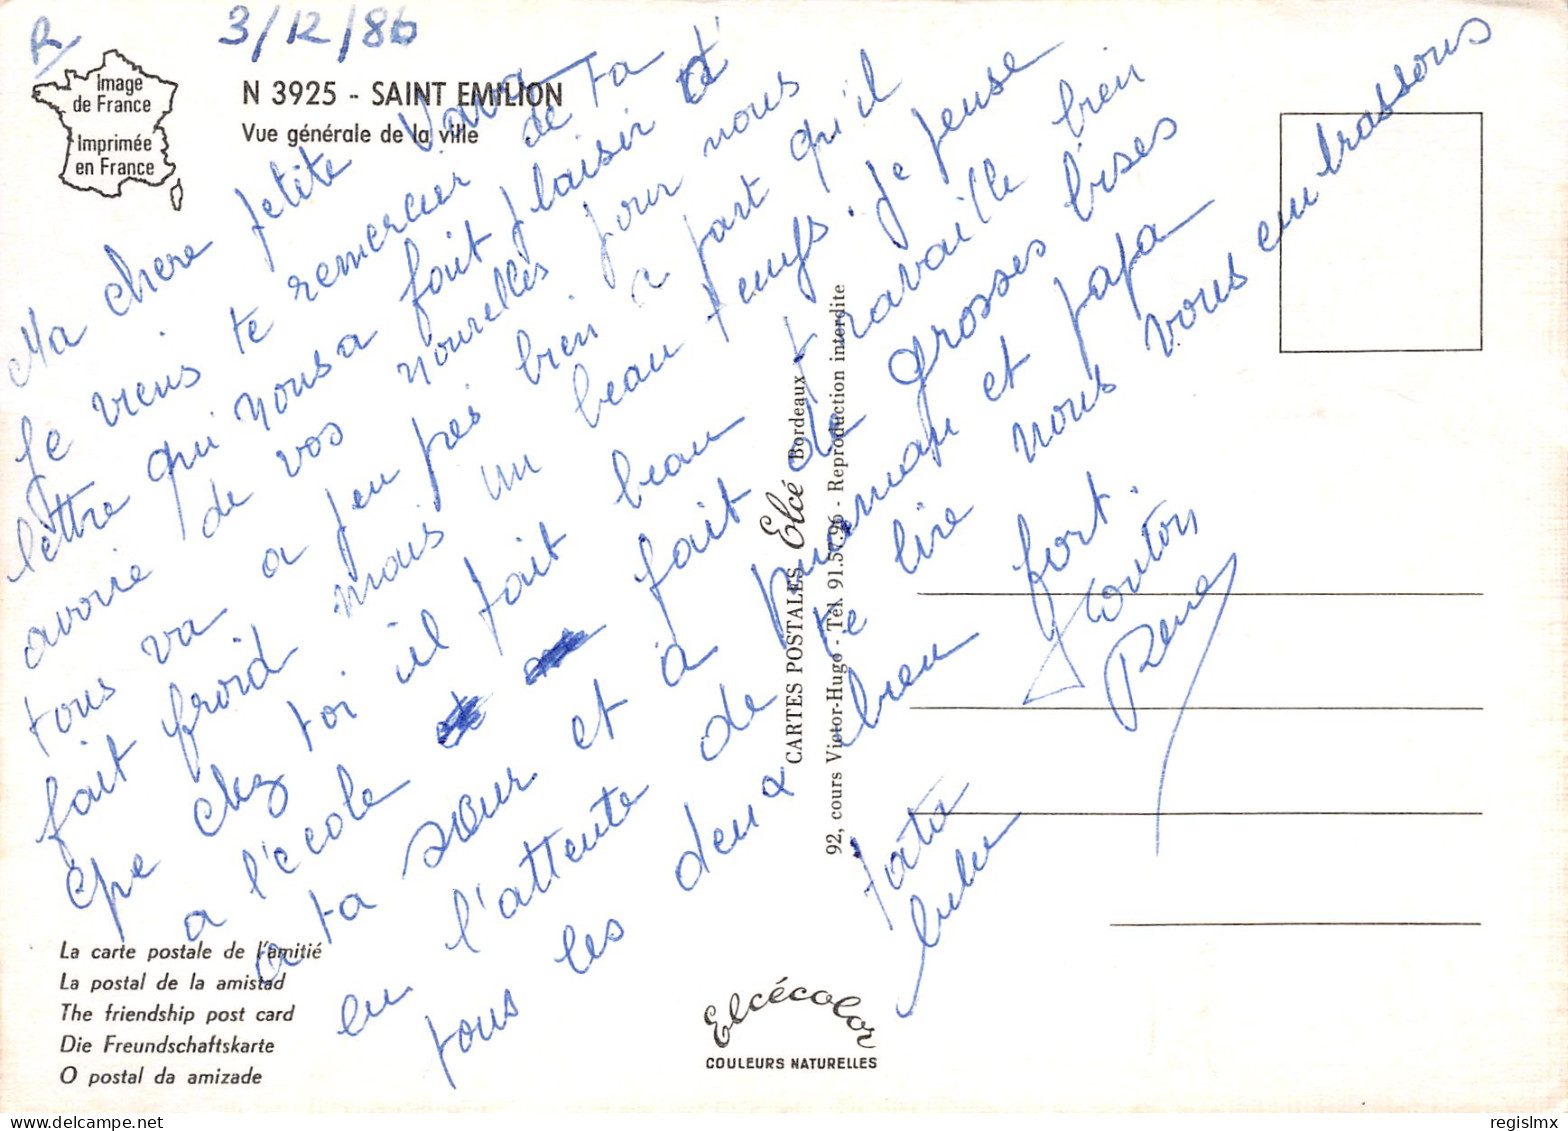 R
3/12/86
Image
de France
Imprimée
en France
N 3925 - SAINT EMILION
Vue générale de la ville
Ma chere petite
Je viens te remercier de ta
lettre qui nous a fait plaisir d'
avoire de vos nouvelles pour nous
tous va a peu pres bien a part qu'il
fait froid mais un beau temps. Je pense
que chez toi il fait beau travaille bien
a l'ecole et fait de grosses bises
a ta sœur et à maman et papa
en l'attente de te lire nous vous embrassons
tous les deux bien fort.
Tonton
Rene
Tata
lulu
CARTES POSTALES Elcé Bordeaux
92, cours Victor-Hugo - Tél. 91.57.96 - Reproduction interdite
La carte postale de l'amitié
La postal de la amistad
The friendship post card
Die Freundschaftskarte
O postal da amizade
Elcécolor
COULEURS NATURELLES
regislmx